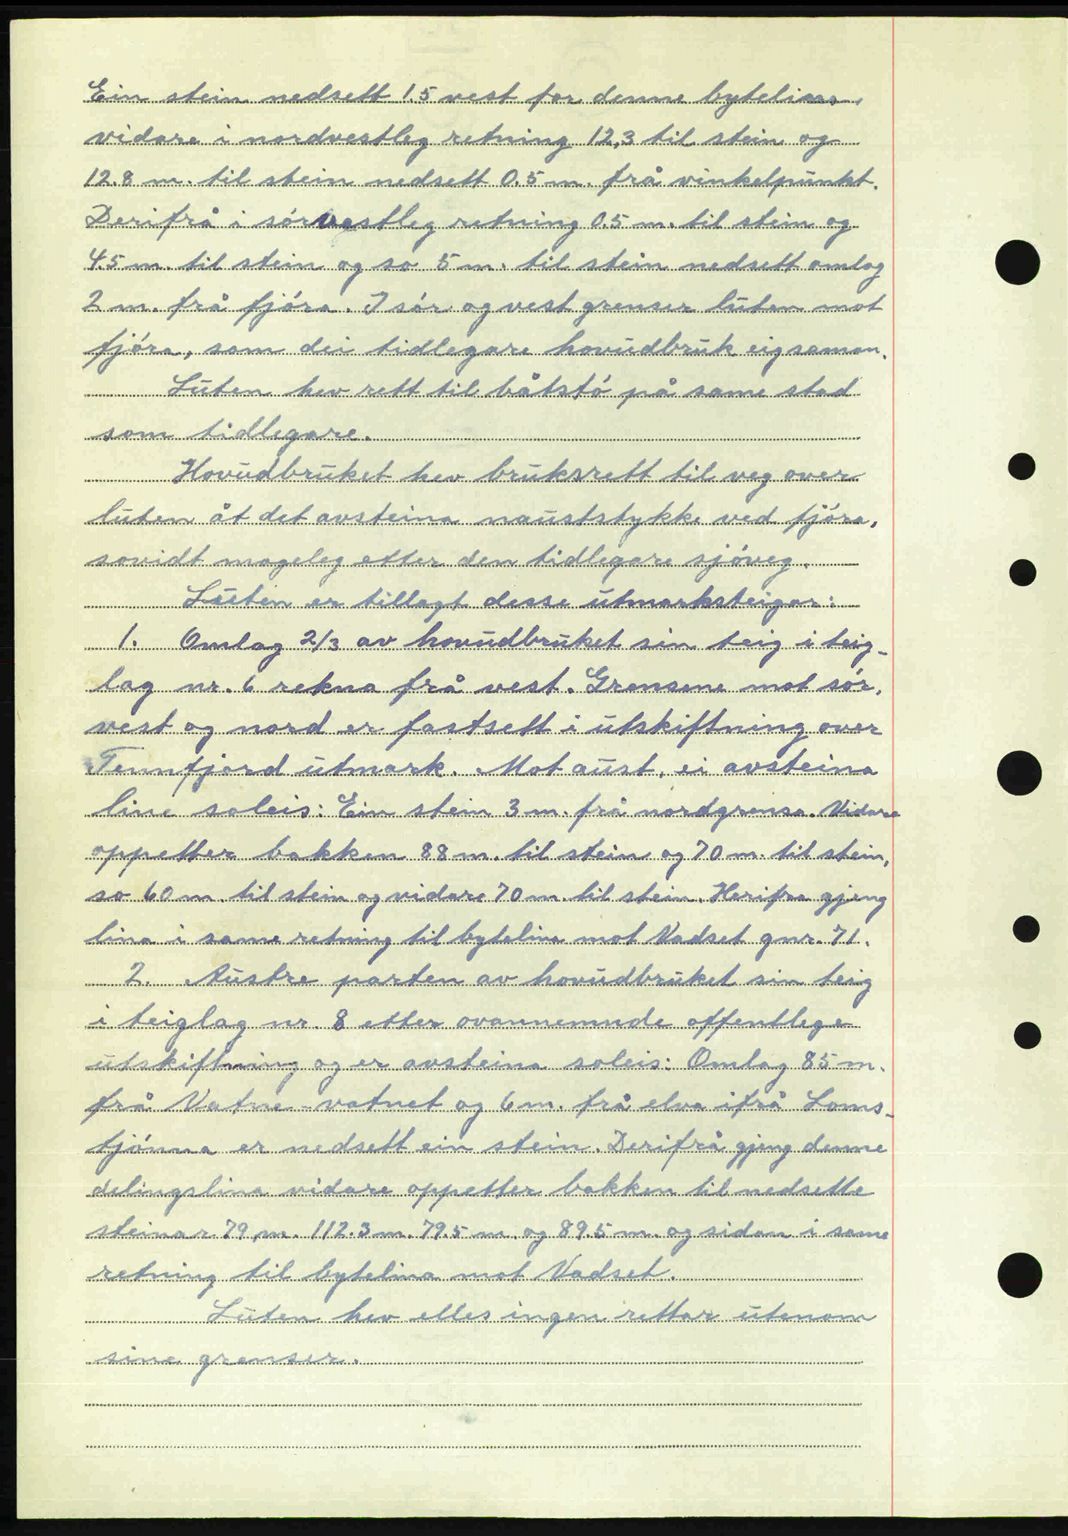 Ein stein nedsett 1.5 vest for denne bytelina.
vidare i nordvestleg retning 12,3 til stein og
12.8 m. til stein nedsett 0.5 m. frå vinkelpunkt.
Derifrå i sórvestleg retning 0.5 m. til stein og
4.5 m. til stein og so 5 m. til stein nedsett omlag
2 m. frå fjóra. I sór og vest grenser luten mot
fjóra, som dei tidlegare hovudbruk eig saman.
Luten hev rett til båtstó på same stad
som tidlegare.
Hovudbruket hev bruksrett til veg over
luten åt det avsteina nauststykke ved fjóra,
sovidt mogeleg etter den tidlegare sjóveg.
Luten er tillagt desse utmarksteigar:
1. Omlag 2/3 av hovudbruket sin teig i teig-
lag nr. 6 rekna frå vest. Grensene mot sór,
vest og nord er fastsett i utskiftning over
Tennfjord utmark. Mot aust, ei avsteina
line soleis: Ein stein 3 m. frå nordgrensa. Vidare
oppetter bakken 88 m. til stein og 70 m. til stein,
so 60 m. til stein og vidare 70 m. til stein. Herifra gjeng
lina i same retning til bytelina mot Vadset gnr. 71.
2. Austre parten av hovudbruket sin teig
i teiglag nr. 8 etter ovannemnde offentlege
utskiftning og er avsteina soleis: Omlag 85 m.
frå Vatne-vatnet og 6 m. frå elva ifrå Loms-
tjónna er nedsett ein stein. Derifrå gjeng denne
delingslina vidare oppetter bakken til nedsette
steinar 79 m. 112.3 m. 79.5 m. og 89.5 m. og sidan i same
retning til bytelina mot Vadset.
Luten hev elles ingen rettar utenom
sine grenser.